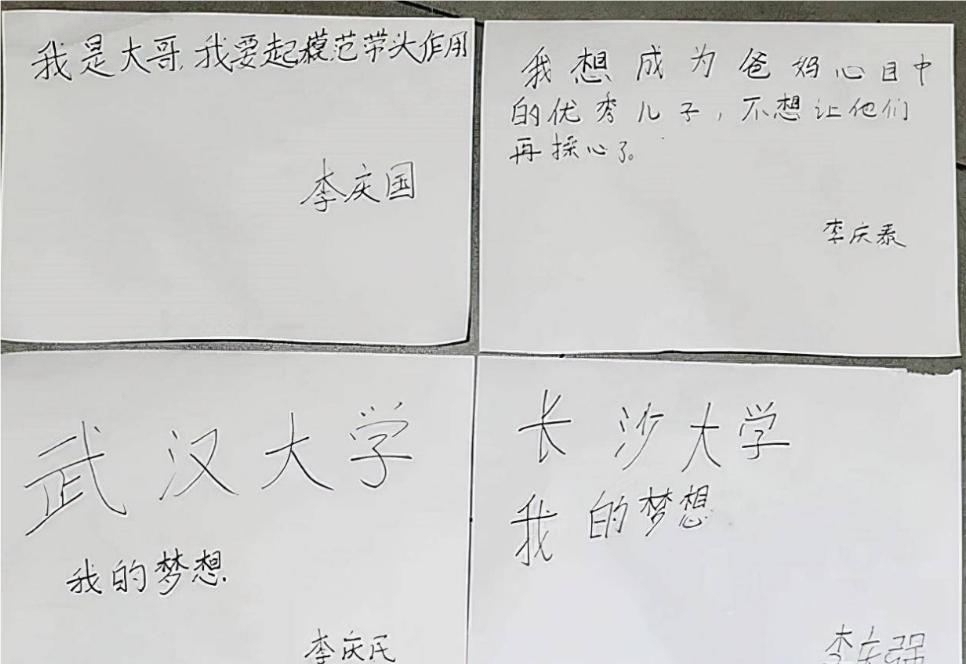 我是大哥,我要起模范带头作用
李庆国
我想成为爸妈心目中
的优秀儿子,不想让他们
再操心了。
李庆泰
武汉大学
我的梦想
李庆民
长沙大学
我的梦想
李庆强